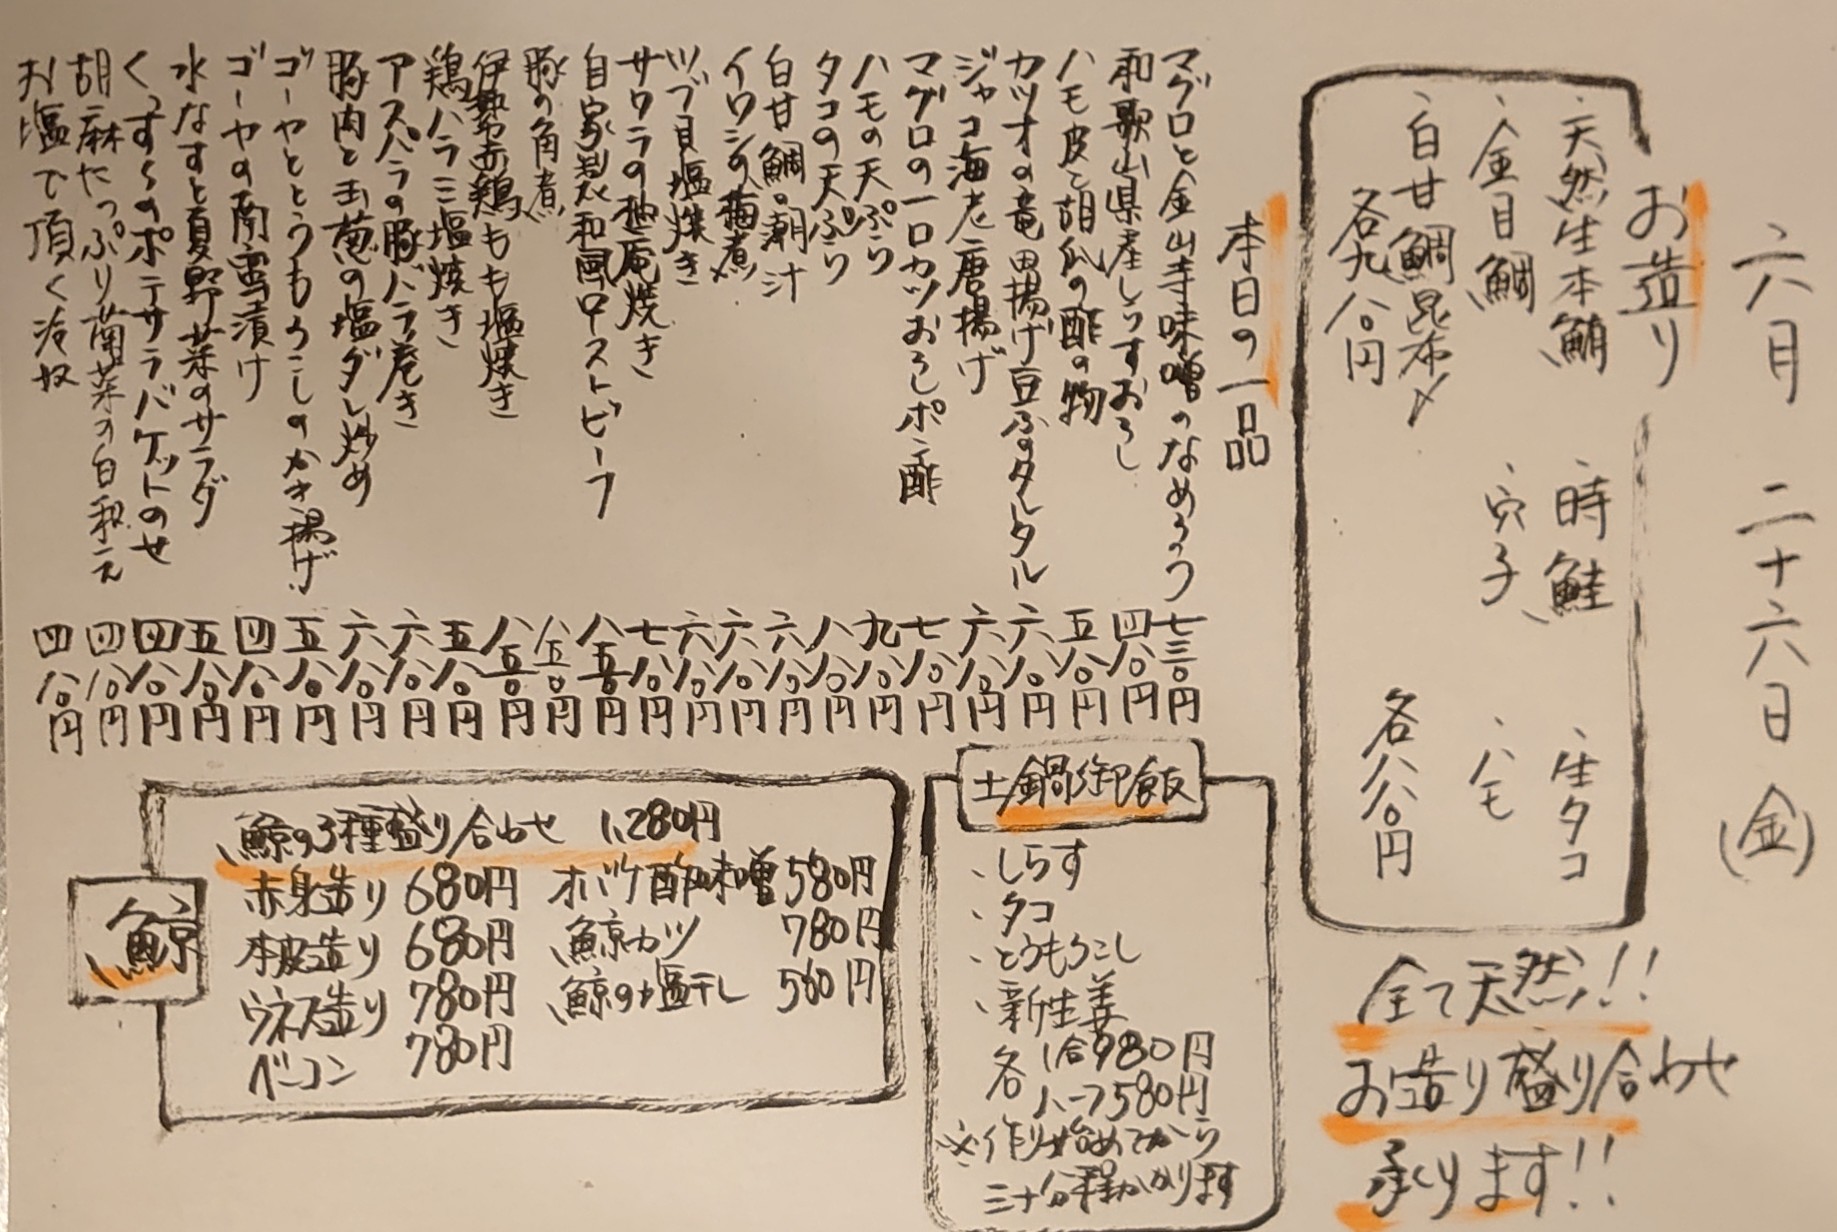 六月 二十六日(金)
お造り
・天然生本鮪 ・時鮭 ・生タコ
・金目鯛 ・穴子 ・ハモ
・白甘鯛昆布〆
各九八〇円 各八八〇円
全て天然!!
お造り盛り合わせ
承ります!!
本日の一品
マグロと金山寺味噌のなめろう 七三〇円
和歌山県産しらすおろし 四八〇円
ハモ皮と胡瓜の酢の物 五八〇円
カツオの竜田揚げ豆ふのタルタル 六八〇円
ジャコ海老唐揚げ 六八〇円
マグロの一口カツおろしポン酢 七八〇円
ハモの天ぷら 九八〇円
タコの天ぷら 八八〇円
白甘鯛の潮汁 六八〇円
イワシの梅煮 六八〇円
ツブ貝塩焼き 六八〇円
サワラの柚庵焼き 七八〇円
自家製和風ローストビーフ 八五〇円
豚の角煮 八五〇円
伊勢赤鶏もも塩焼き 八五〇円
鶏ハラミ塩焼き 五八〇円
アスパラの豚バラ巻き 六八〇円
豚肉と玉葱の塩ダレ炒め 六八〇円
ゴーヤととうもろこしのかき揚げ 五八〇円
ゴーヤの南蛮漬け 四八〇円
水なすと夏野菜のサラダ 五八〇円
くんすらのポテサラバケットのせ 四八〇円
胡麻たっぷり菊菜の白和え 四八〇円
お塩で頂く冷奴 四八〇円
土鍋御飯
・しらす
・タコ
・とうもろこし
・新生姜
各 1合980円
ハーフ580円
※作り始めてから
三十分程かかります
鯨
鯨の3種盛り合わせ 1,280円
赤身造り 680円 オバケ酢味噌 580円
本皮造り 680円 鯨カツ 780円
ウネス造り 780円 鯨の塩干し 560円
ベーコン 780円